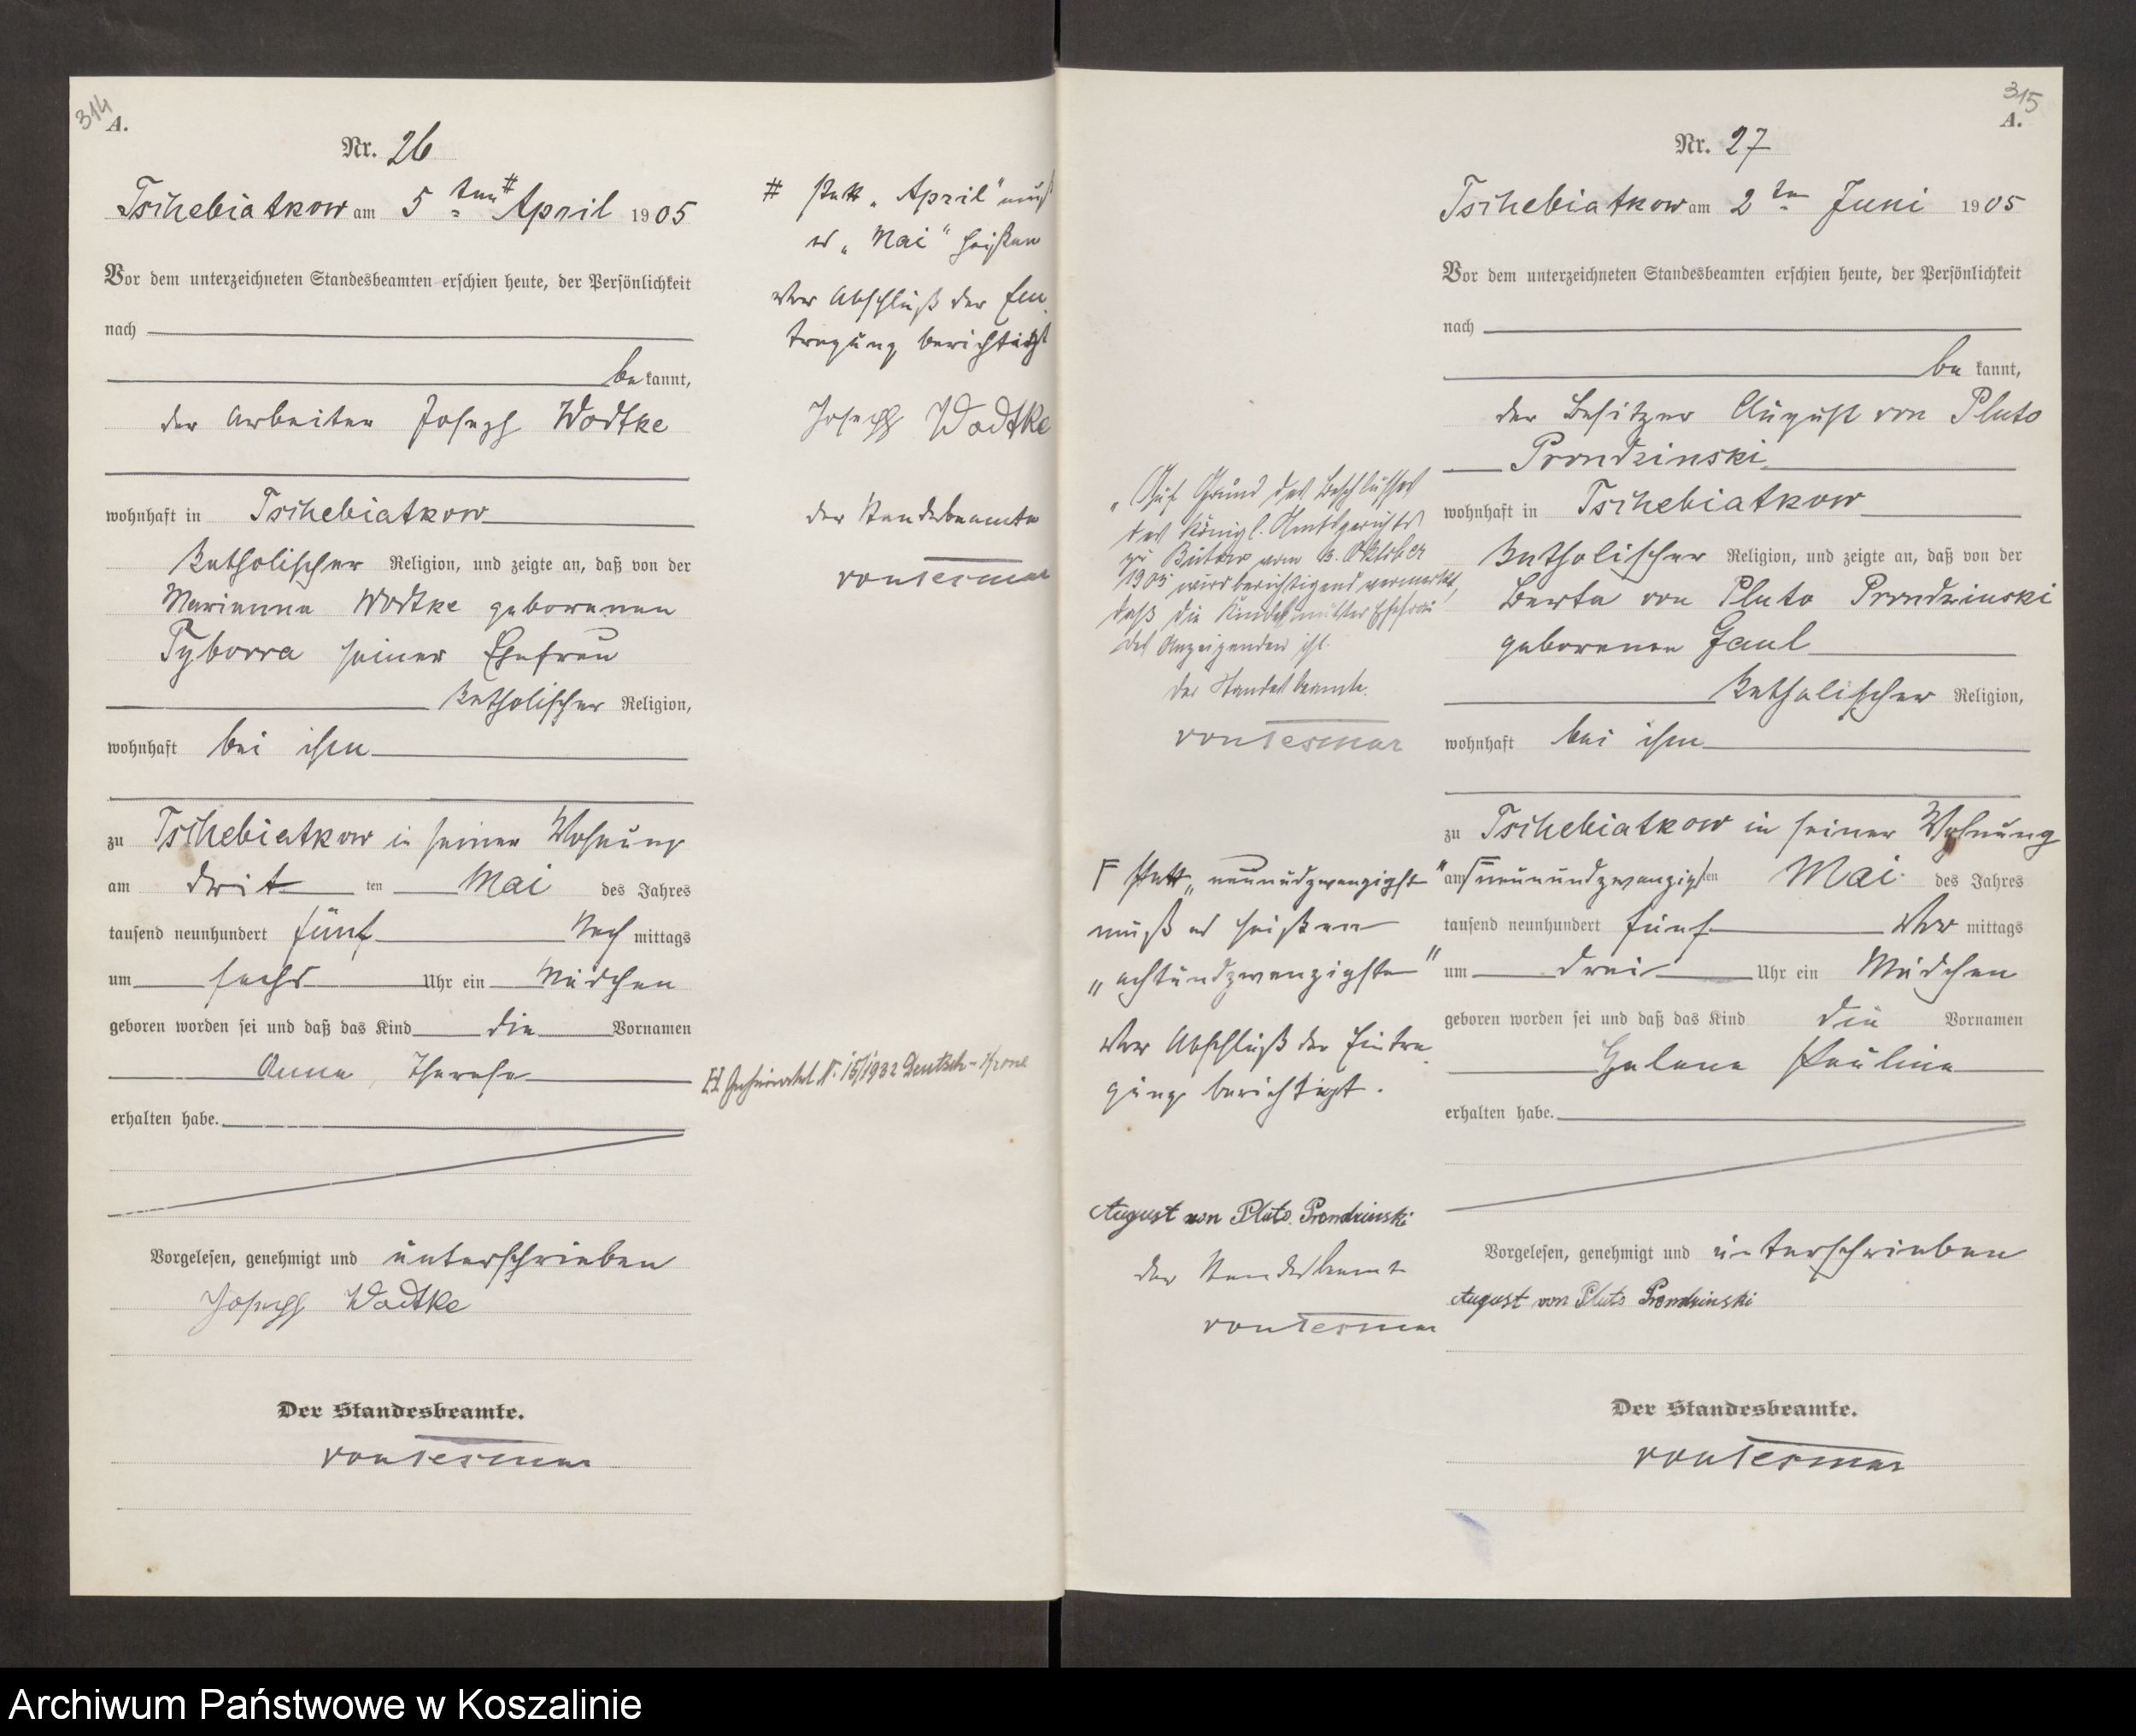 314
A.
Nr. 26
Tschebiatkow am 5ten # April 1905
Vor dem unterzeichneten Standesbeamten erschien heute, der Persönlichkeit
nach
be kannt,
der Arbeiter Joseph Wodtke
wohnhaft in Tschebiatkow
katholischer Religion, und zeigte an, daß von der
Marianna Wodtke geborenen
Tyborra seiner Ehefrau
katholischer Religion,
wohnhaft bei ihm
zu Tschebiatkow in seiner Wohnung
am drit ten Mai des Jahres
tausend neunhundert fünf Nach mittags
um sechs Uhr ein Mädchen
geboren worden sei und daß das Kind die Vornamen
Anna Therese
erhalten habe.
Vorgelesen, genehmigt und unterschrieben
Joseph Wodtke
Der Standesbeamte.
von Tesmar
# statt „April“ muß
es „Mai“ heißen
Vor Abschluß der Ein
tragung berichtigt
Joseph Wodtke
der Standesbeamte
von Tesmar
H. Geheiratet Nr. 15/1932 Deutsch-Krone
315
A.
Nr. 27
Tschebiatkow am 2ten Juni 1905
Vor dem unterzeichneten Standesbeamten erschien heute, der Persönlichkeit
nach
be kannt,
der Besitzer August von Pluto
Prondzinski
wohnhaft in Tschebiatkow
katholischer Religion, und zeigte an, daß von der
Berta von Pluto Prondzinski
geborenen Gaul
katholischer Religion,
wohnhaft bei ihm
zu Tschebiatkow in seiner Wohnung
am neunundzwanzigsten Mai des Jahres
tausend neunhundert fünf Vor mittags
um drei Uhr ein Mädchen
geboren worden sei und daß das Kind die Vornamen
Helene Pauline
erhalten habe.
Vorgelesen, genehmigt und unterschrieben
August von Pluto Prondzinski
Der Standesbeamte.
von Tesmar
„Auf Grund des Beschlusses
des Königl. Amtsgerichts
zu Bütow vom Oktober
1905 wird berichtigend vermerkt,
daß die Kindesmutter Ehefrau
des Anzeigenden ist.
Der Standesbeamte.
von Tesmar
F statt „neunundzwanzigst“
muß es heißen
„achtundzwanzigsten“
Vor Abschluß der Eintra
gung berichtigt.
August von Pluto Prondzinski
der Standesbeamte
von Tesmar
Archiwum Państwowe w Koszalinie